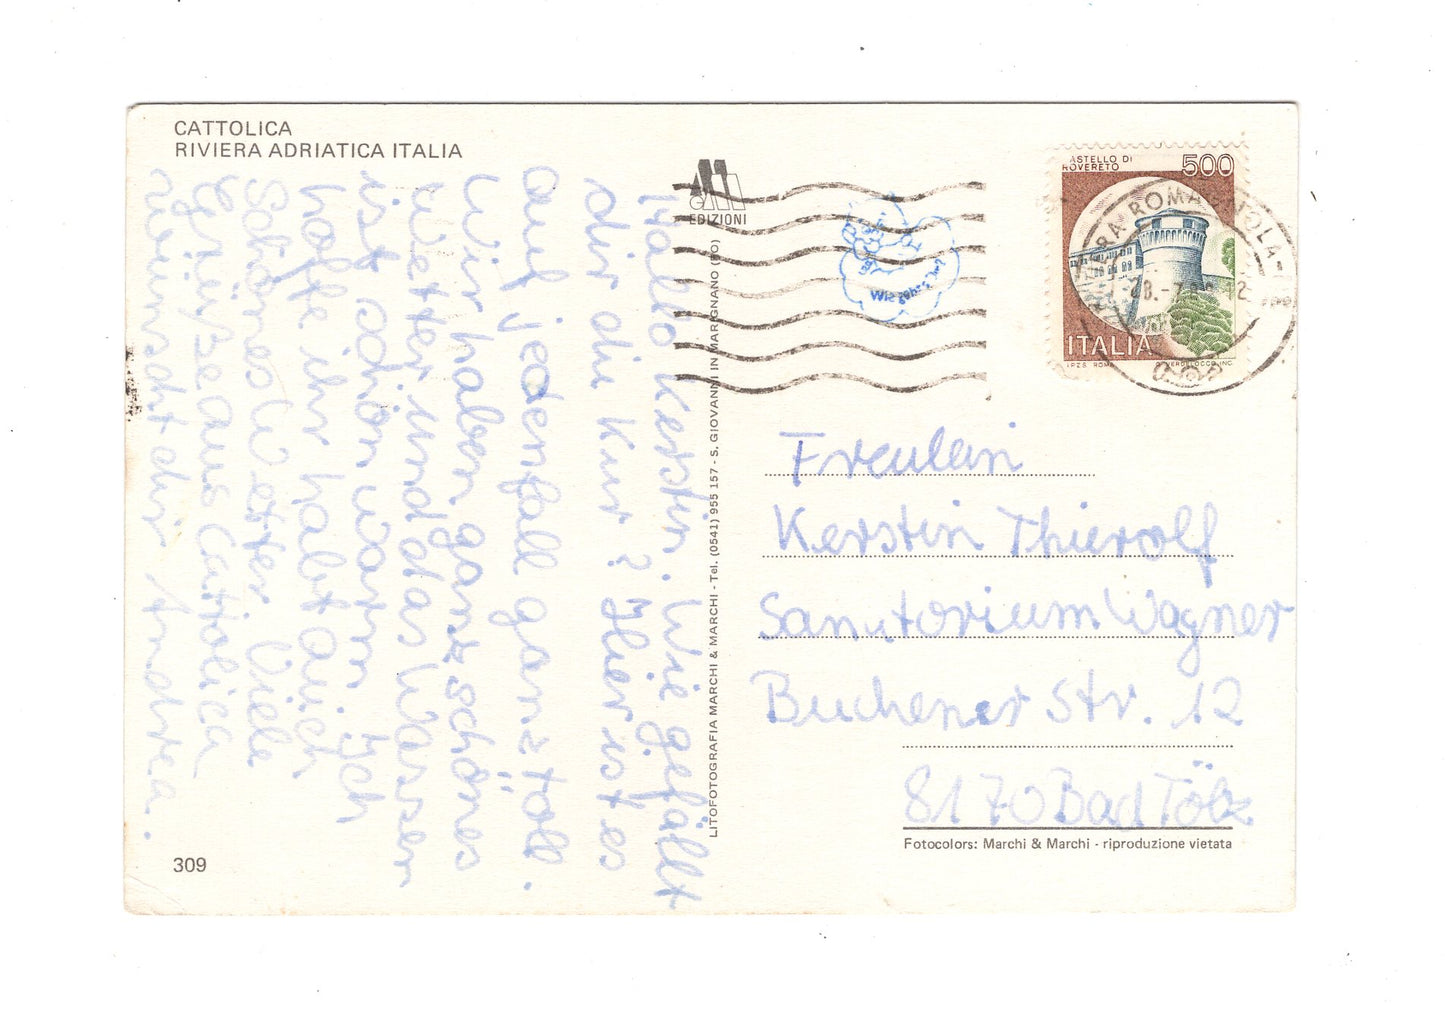 CATTOLICA
RIVIERA ADRIATICA ITALIA
Hallo Kerstin. Wie gefällt
dir die Kur? Hier ist es
auf jedenfall ganz toll.
Wir haben ganz schönes
Wetter und das Wasser
ist schön warm. Ich
hoffe ihr habt auch
Schönes Wetter. Viele
Grüße aus Cattolica
wünscht dir Andrea.
309
EDIZIONI
LITOFOTOGRAFIA MARCHI & MARCHI - Tel. (0541) 955 157 - S. GIOVANNI IN MARIGNANO (FO)
Wie geht's Dir?
ASTELLO DI
ROVERETO
500
ITALIA
I.P.Z.S. ROMA
VERDELOCCO INC.
ROMAGNOLA
28.-7
12
Freulein
Kerstin Thierolf
Sanutorium Wagner
Buchener Str. 12
8170 Bad Tölz
Fotocolors: Marchi & Marchi - riproduzione vietata